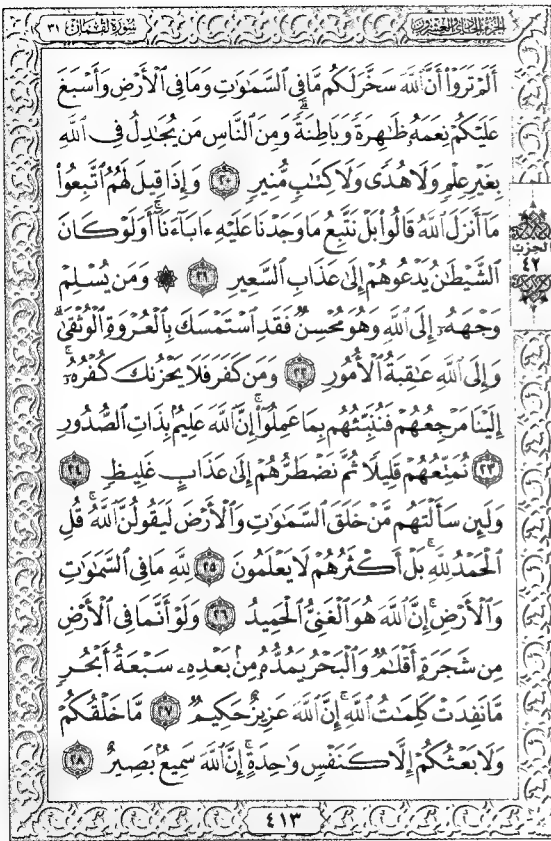 الجزء الحادي والعشرون
سورة لقمان ٣١
أَلَمْ تَرَوْا۟ أَنَّ ٱللَّهَ سَخَّرَ لَكُم مَّا فِى ٱلسَّمَـٰوَٰتِ وَمَا فِى ٱلْأَرْضِ وَأَسْبَغَ
عَلَيْكُمْ نِعَمَهُۥ ظَـٰهِرَةً وَبَاطِنَةً ۗ وَمِنَ ٱلنَّاسِ مَن يُجَـٰدِلُ فِى ٱللَّهِ
بِغَيْرِ عِلْمٍ وَلَا هُدًى وَلَا كِتَـٰبٍ مُّنِيرٍ ٢٠ وَإِذَا قِيلَ لَهُمُ ٱتَّبِعُوا۟
مَآ أَنزَلَ ٱللَّهُ قَالُوا۟ بَلْ نَتَّبِعُ مَا وَجَدْنَا عَلَيْهِ ءَابَآءَنَآ ۚ أَوَلَوْ كَانَ
ٱلشَّيْطَـٰنُ يَدْعُوهُمْ إِلَىٰ عَذَابِ ٱلسَّعِيرِ ٢١ ۞ وَمَن يُسْلِمْ
وَجْهَهُۥٓ إِلَى ٱللَّهِ وَهُوَ مُحْسِنٌ فَقَدِ ٱسْتَمْسَكَ بِٱلْعُرْوَةِ ٱلْوُثْقَىٰ ۗ
وَإِلَى ٱللَّهِ عَـٰقِبَةُ ٱلْأُمُورِ ٢٢ وَمَن كَفَرَ فَلَا يَحْزُنكَ كُفْرُهُۥٓ ۚ
إِلَيْنَا مَرْجِعُهُمْ فَنُنَبِّئُهُم بِمَا عَمِلُوٓا۟ ۚ إِنَّ ٱللَّهَ عَلِيمٌۢ بِذَاتِ ٱلصُّدُورِ
٢٣ نُمَتِّعُهُمْ قَلِيلًا ثُمَّ نَضْطَرُّهُمْ إِلَىٰ عَذَابٍ غَلِيظٍ ٢٤
وَلَئِن سَأَلْتَهُم مَّنْ خَلَقَ ٱلسَّمَـٰوَٰتِ وَٱلْأَرْضَ لَيَقُولُنَّ ٱللَّهُ ۚ قُلِ
ٱلْحَمْدُ لِلَّهِ ۚ بَلْ أَكْثَرُهُمْ لَا يَعْلَمُونَ ٢٥ لِلَّهِ مَا فِى ٱلسَّمَـٰوَٰتِ
وَٱلْأَرْضِ ۚ إِنَّ ٱللَّهَ هُوَ ٱلْغَنِىُّ ٱلْحَمِيدُ ٢٦ وَلَوْ أَنَّمَا فِى ٱلْأَرْضِ
مِن شَجَرَةٍ أَقْلَـٰمٌ وَٱلْبَحْرُ يَمُدُّهُۥ مِنۢ بَعْدِهِۦ سَبْعَةُ أَبْحُرٍ
مَّا نَفِدَتْ كَلِمَـٰتُ ٱللَّهِ ۗ إِنَّ ٱللَّهَ عَزِيزٌ حَكِيمٌ ٢٧ مَّا خَلْقُكُمْ
وَلَا بَعْثُكُمْ إِلَّا كَنَفْسٍ وَٰحِدَةٍ ۗ إِنَّ ٱللَّهَ سَمِيعٌۢ بَصِيرٌ ٢٨
الحزب
٤٢
٤١٣